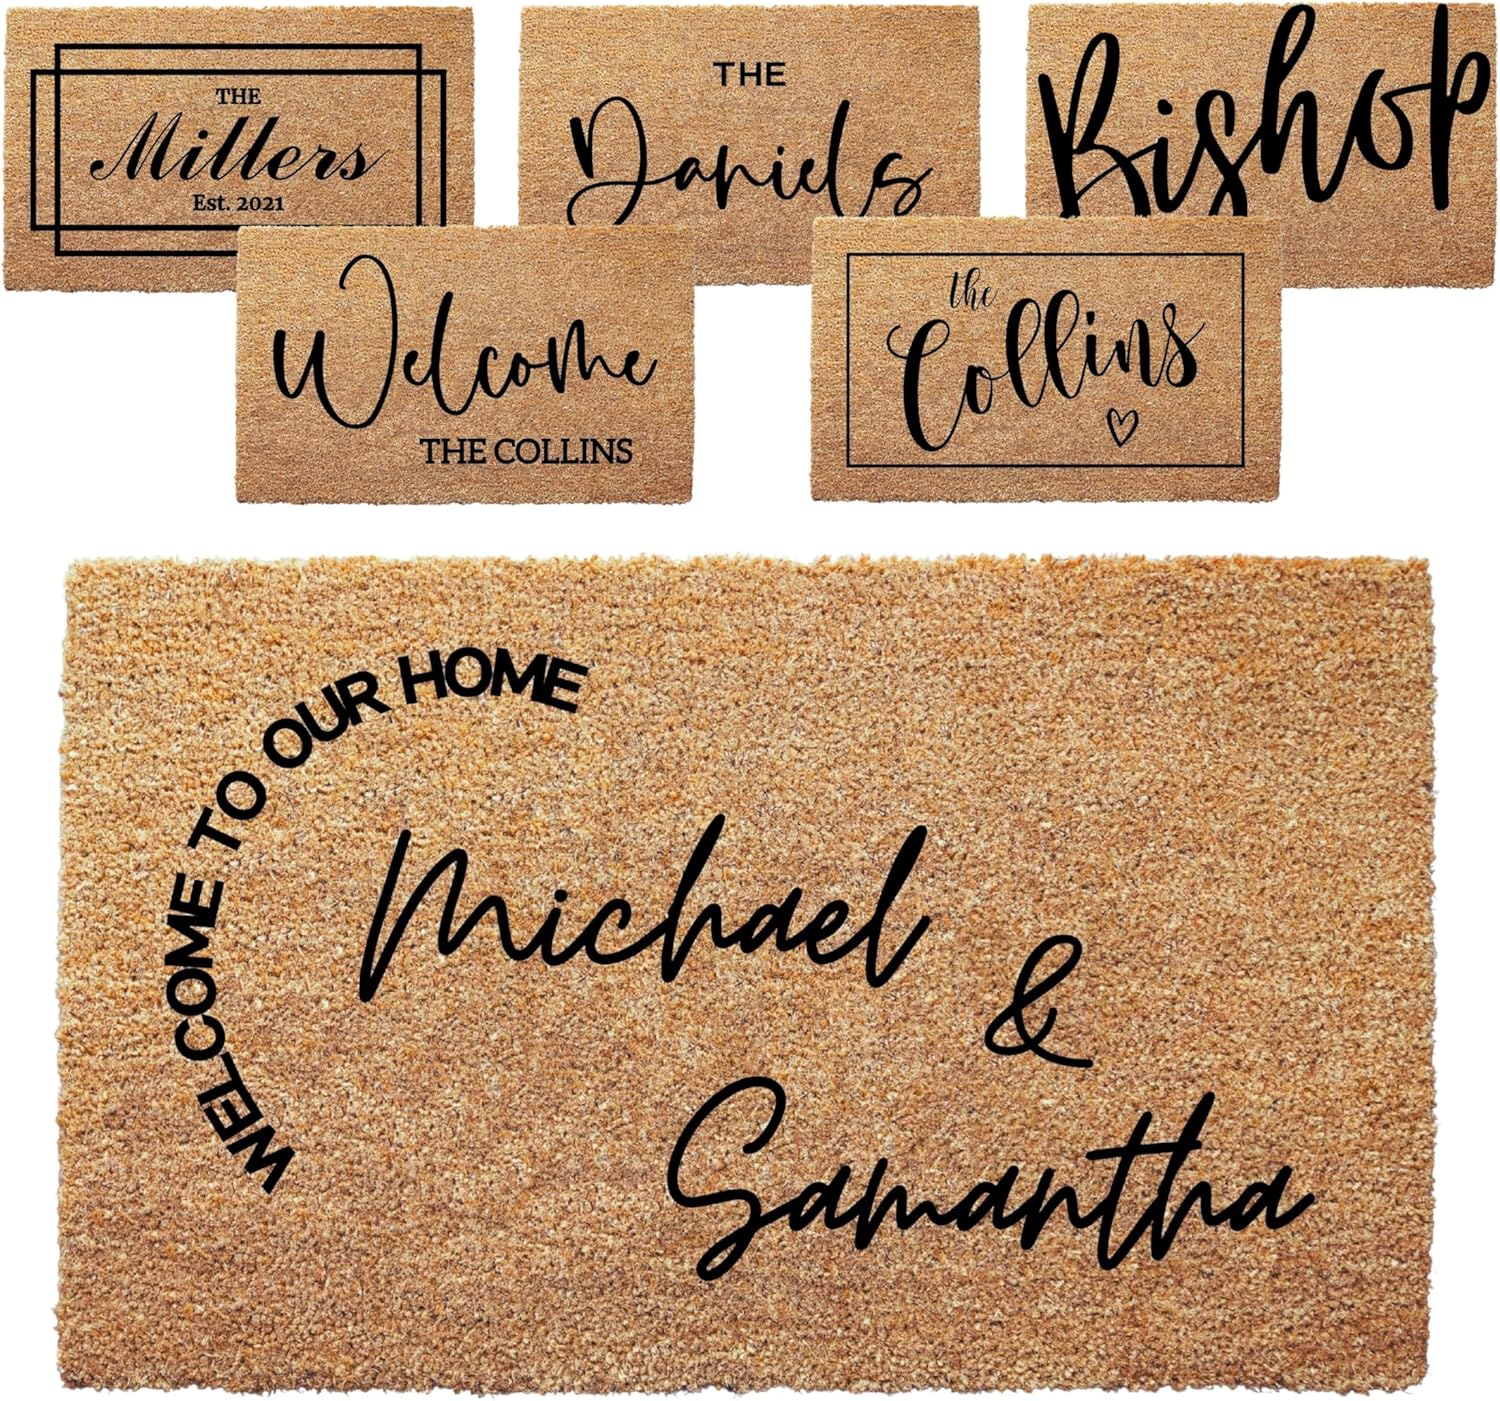 THE
Millers
Est. 2021
THE
Daniels
Bishop
Welcome
THE COLLINS
the
Collins
WELCOME TO OUR HOME
Michael
&
Samantha